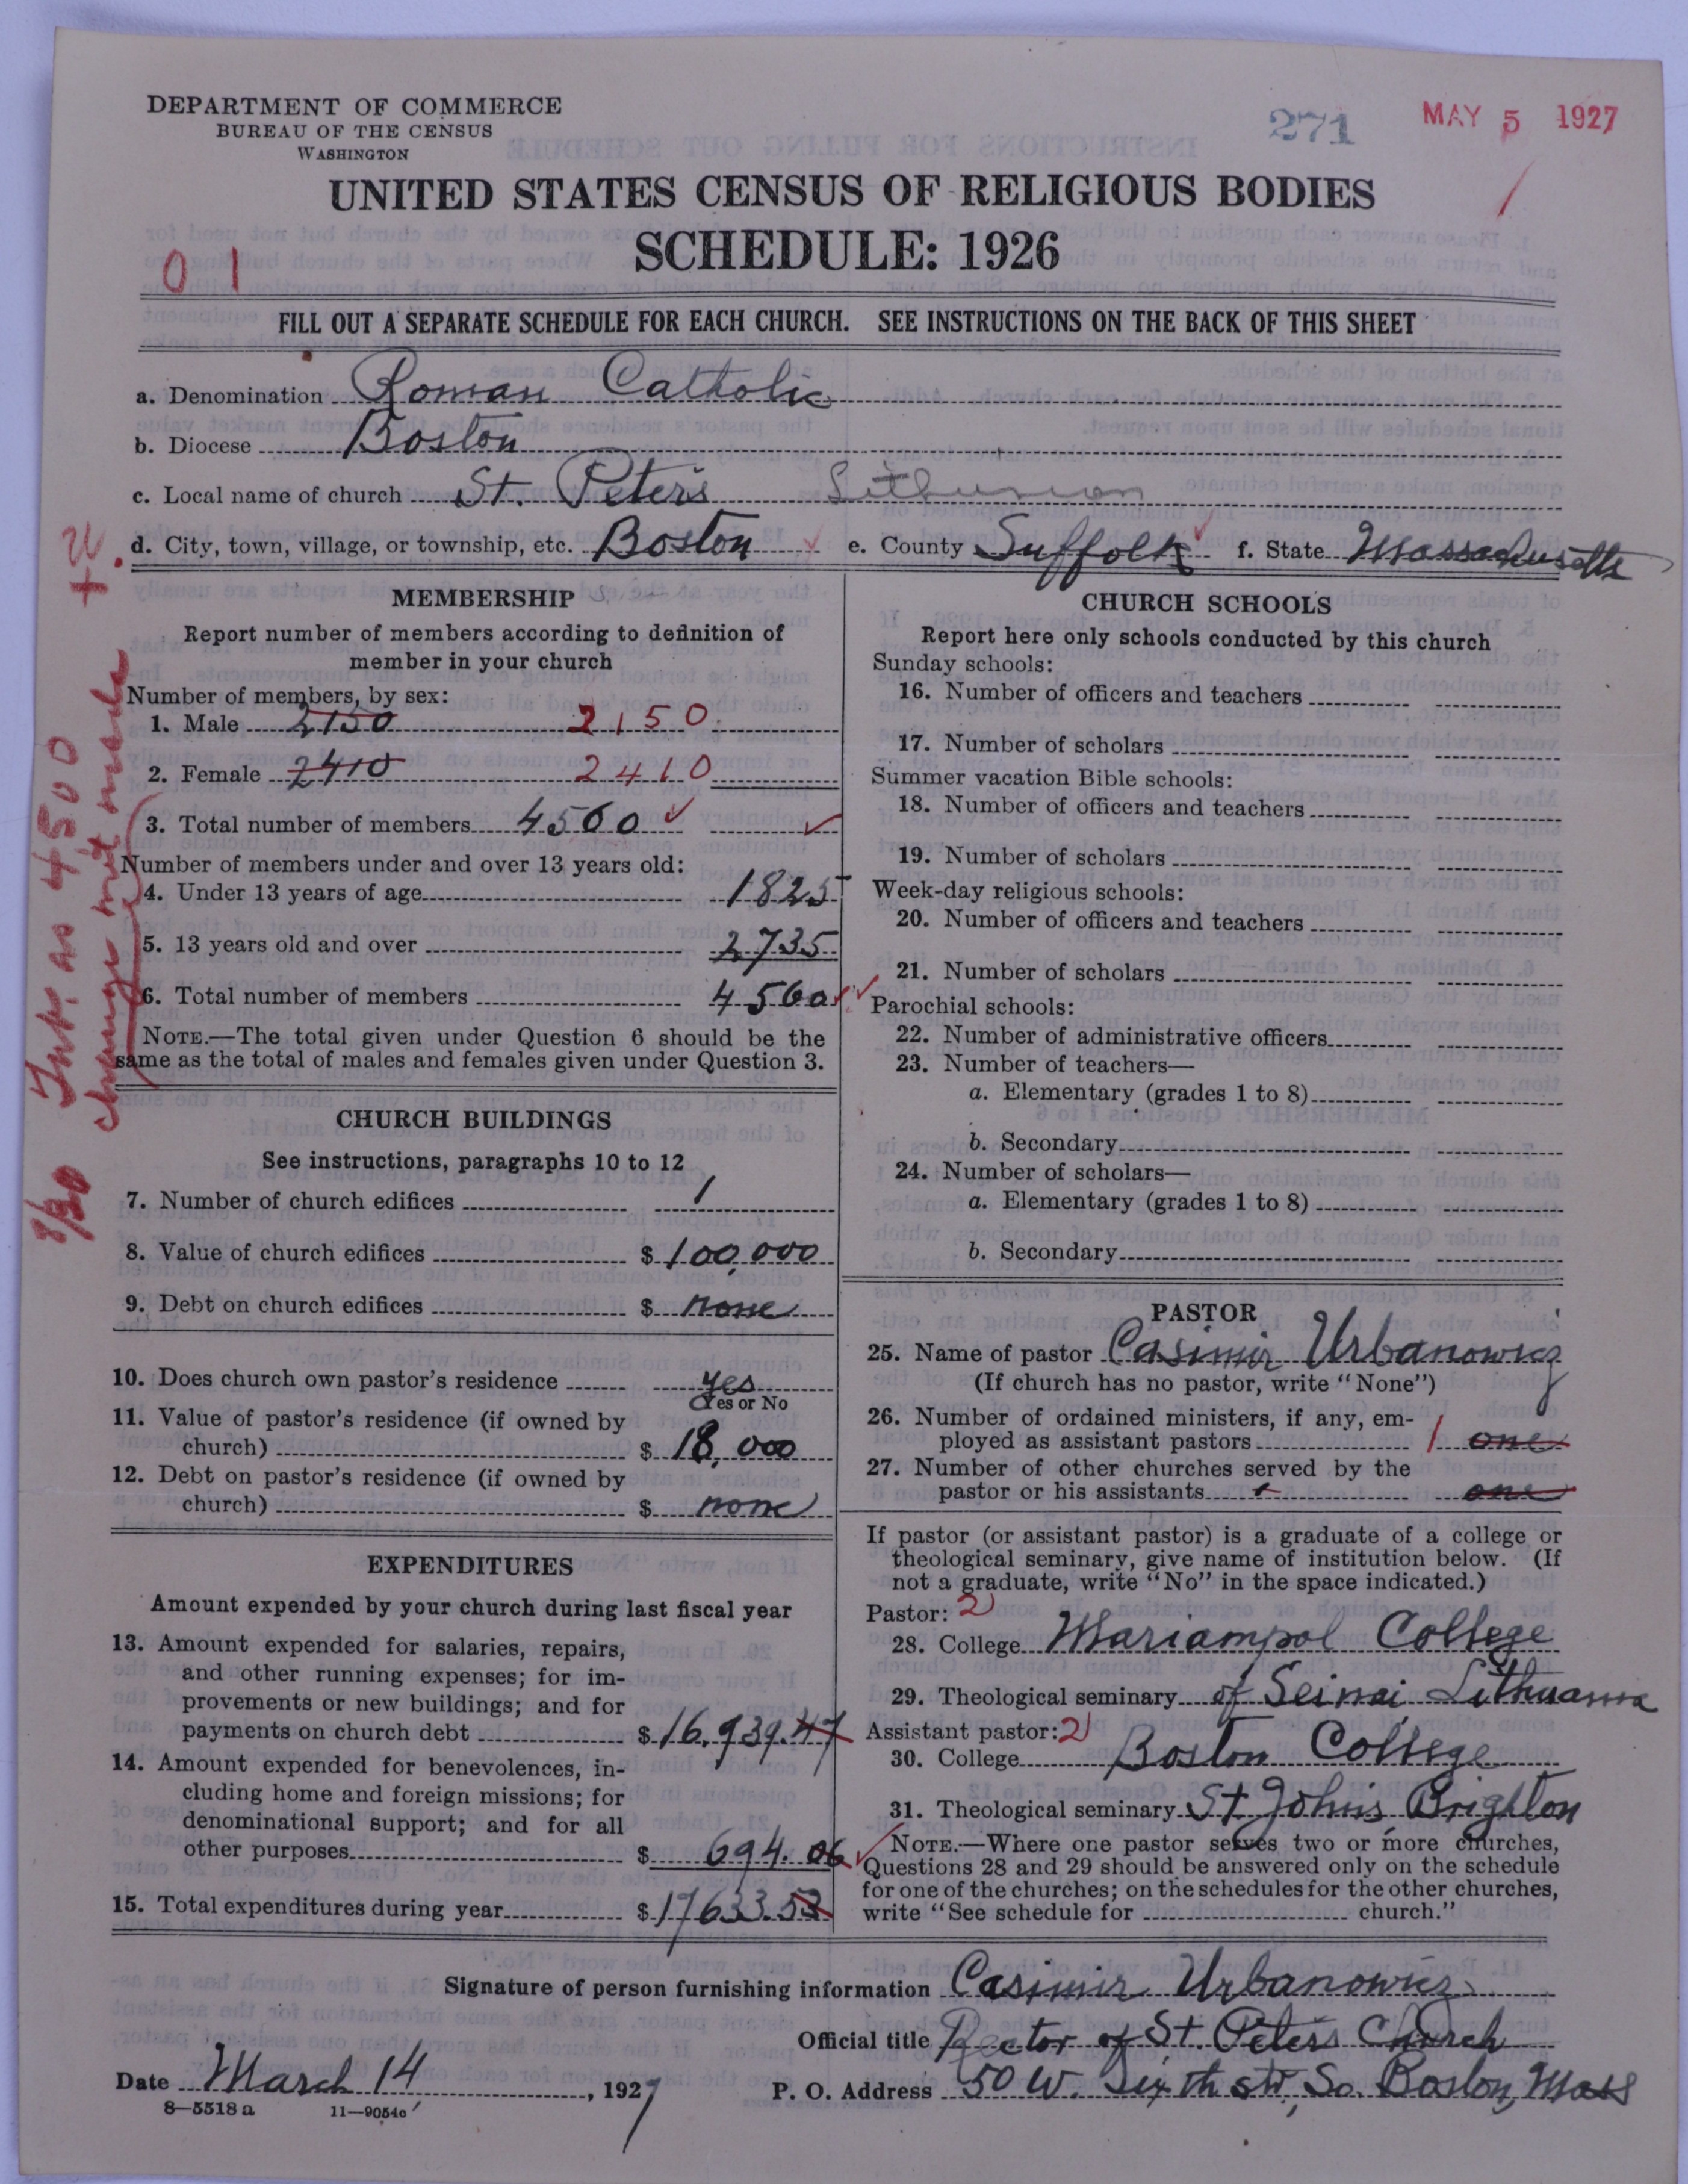 DEPARTMENT OF COMMERCE
BUREAU OF THE CENSUS
WASHINGTON
271
MAY 5 1927
UNITED STATES CENSUS OF RELIGIOUS BODIES
SCHEDULE: 1926
0 1
FILL OUT A SEPARATE SCHEDULE FOR EACH CHURCH. SEE INSTRUCTIONS ON THE BACK OF THIS SHEET
a. Denomination Roman Catholic
b. Diocese Boston
c. Local name of church St. Peters Lithunian
d. City, town, village, or township, etc. Boston e. County Suffolk f. State Massachusetts
MEMBERSHIP
Report number of members according to definition of
member in your church
Number of members, by sex:
1. Male 2150 2150
2. Female 2410 2410
3. Total number of members 4560
Number of members under and over 13 years old:
4. Under 13 years of age 1825
5. 13 years old and over 2735
6. Total number of members 4560
NOTE.—The total given under Question 6 should be the
same as the total of males and females given under Question 3.
CHURCH BUILDINGS
See instructions, paragraphs 10 to 12
7. Number of church edifices 1
8. Value of church edifices $ 100,000
9. Debt on church edifices $ none
10. Does church own pastor's residence yes
Yes or No
11. Value of pastor's residence (if owned by
church) $ 18,000
12. Debt on pastor's residence (if owned by
church) $ none
EXPENDITURES
Amount expended by your church during last fiscal year
13. Amount expended for salaries, repairs,
and other running expenses; for im-
provements or new buildings; and for
payments on church debt $ 16,939.47
14. Amount expended for benevolences, in-
cluding home and foreign missions; for
denominational support; and for all
other purposes $ 694.06
15. Total expenditures during year $ 17633.53
CHURCH SCHOOLS
Report here only schools conducted by this church
Sunday schools:
16. Number of officers and teachers
17. Number of scholars
Summer vacation Bible schools:
18. Number of officers and teachers
19. Number of scholars
Week-day religious schools:
20. Number of officers and teachers
21. Number of scholars
Parochial schools:
22. Number of administrative officers
23. Number of teachers—
a. Elementary (grades 1 to 8)
b. Secondary
24. Number of scholars—
a. Elementary (grades 1 to 8)
b. Secondary
PASTOR
25. Name of pastor Casimir Urbanowicz
(If church has no pastor, write "None")
26. Number of ordained ministers, if any, em-
ployed as assistant pastors 1 one
27. Number of other churches served by the
pastor or his assistants one
If pastor (or assistant pastor) is a graduate of a college or
theological seminary, give name of institution below. (If
not a graduate, write "No" in the space indicated.)
Pastor: 2
28. College Mariampol College
29. Theological seminary of Seinai, Lithuania
Assistant pastor: 2
30. College Boston College
31. Theological seminary St Johns, Brighton
NOTE.—Where one pastor serves two or more churches,
Questions 28 and 29 should be answered only on the schedule
for one of the churches; on the schedules for the other churches,
write "See schedule for church."
Signature of person furnishing information Casimir Urbanowicz
Official title Rector of St. Peters Church
Date March 14, 1927
P. O. Address 50 W. Sixth str, So. Boston, Mass
8—5518 a 11—9054
as 4500
change not made